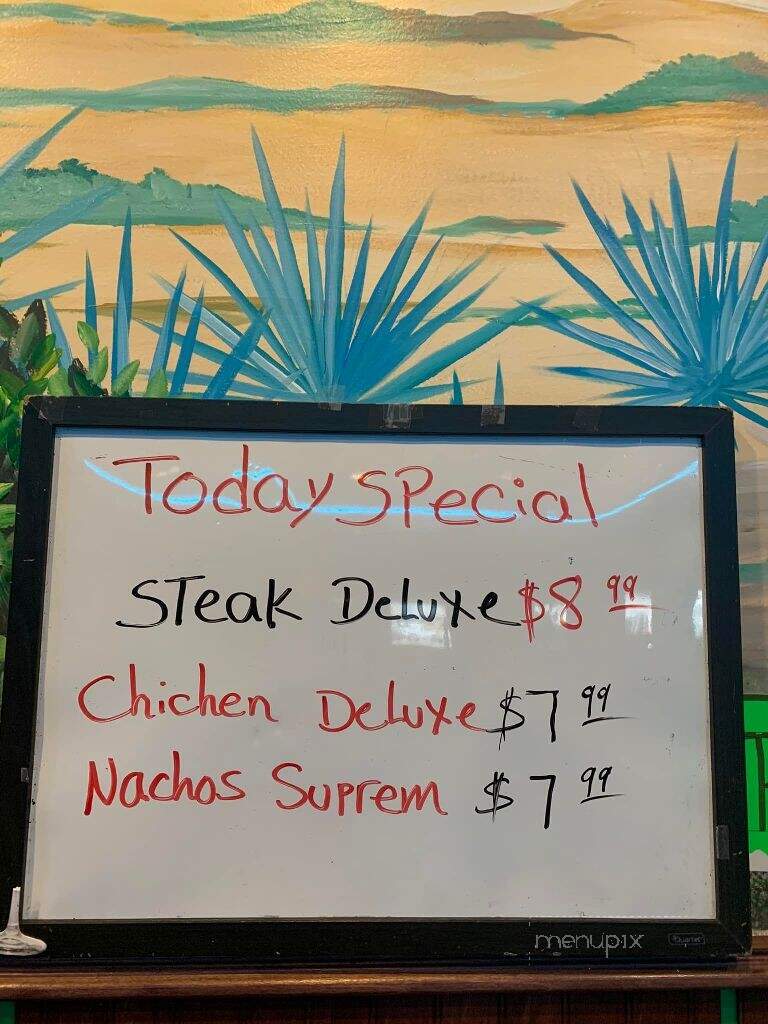 Today SPecial
STeak Deluxe $8 99
Chichen Deluxe $7 99
Nachos Suprem $7 99
menupix
Quartet